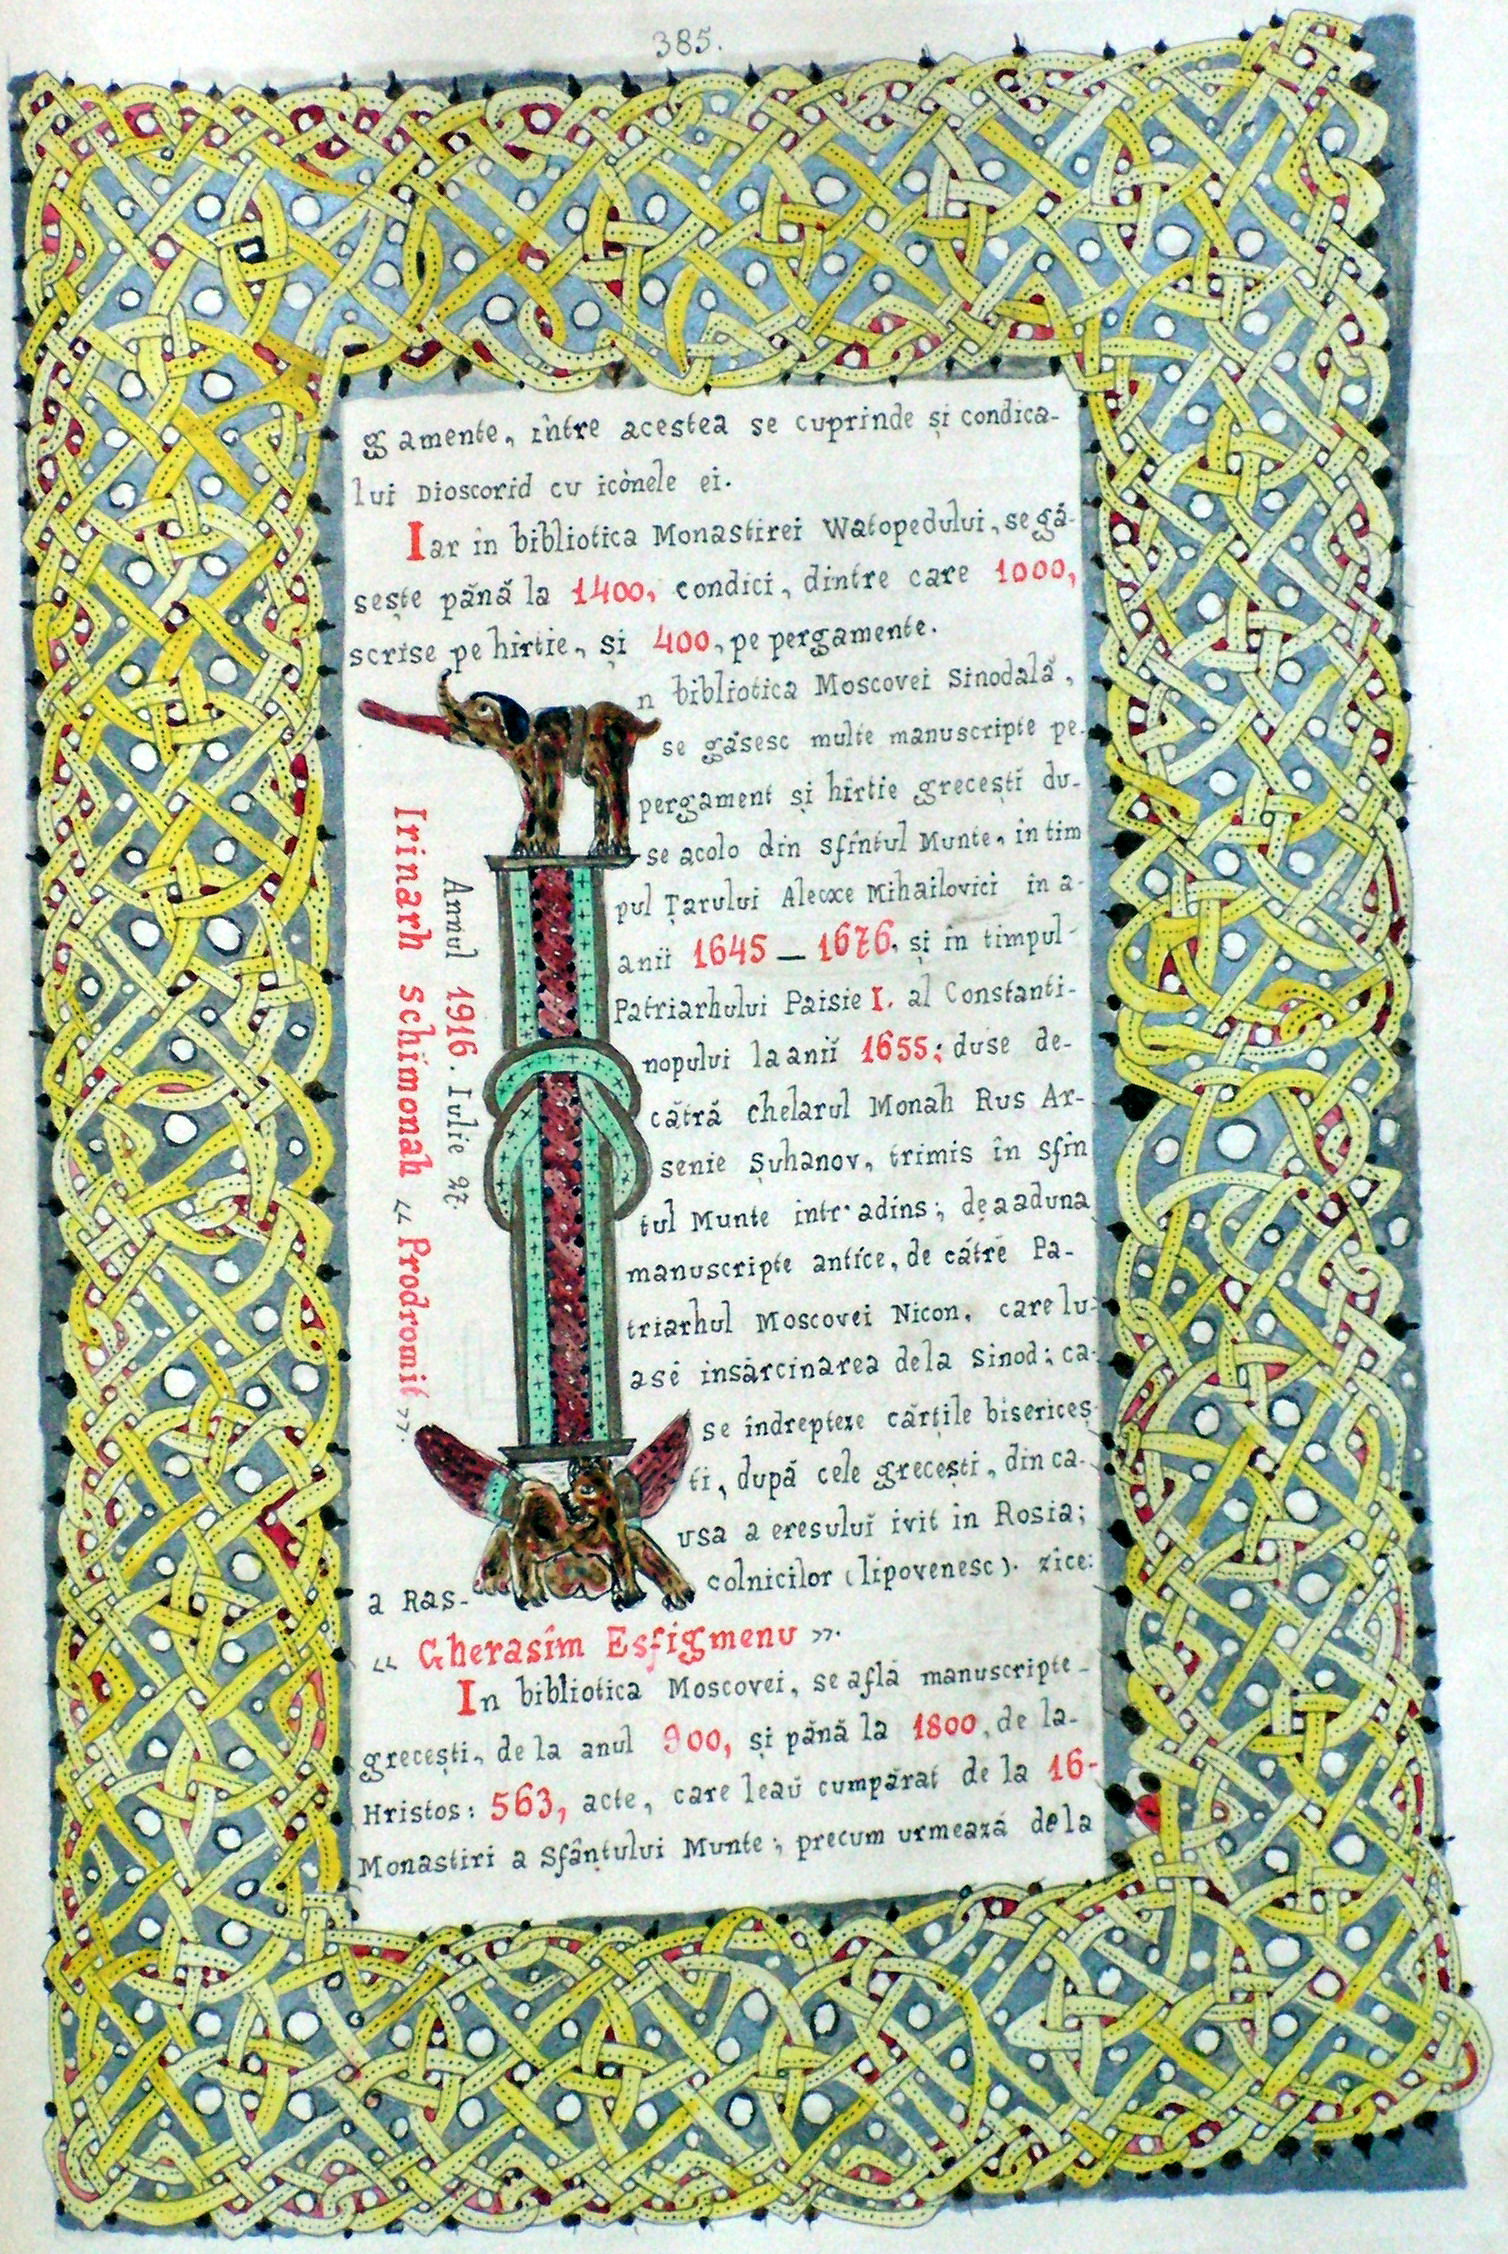 385.
gamente, între acestea se cuprinde și condica-
lui Dioscorid cu icònele ei.
Iar în bibliotica Monastirei Watopedului, se gă-
sește până la 1400, condici, dintre care 1000,
scrise pe hîrtie, și 400, pe pergamente.
n bibliotica Moscovei Sinodală,
se găsesc multe manuscripte pe-
pergament și hîrtie grecești du-
se acolo din sfîntul Munte, în tim
pul Țarului Alecxe Mihailovici în a-
anii 1645 — 1676, și în timpul-
Patriarhului Paisie I. al Constanti-
nopului la anii 1655; duse de-
cătră chelarul Monah Rus Ar-
senie Șuhanov, trimis în Sfîn
tul Munte intr'adins; de a aduna
manuscripte antice, de cătrĕ Pa-
triarhul Moscovei Nicon, care lu-
asĕ insărcinarea de la Sinod; ca-
se îndrepteze cărțile biserices-
ti, după cele grecești, din ca-
usa a eresuluĭ ivit în Rosia;
a Ras-colnicilor (lipovenesc). zice:
« Gherasim Esfigmenu ».
In bibliotica Moscovei, se află manuscripte-
grecești, de la anul 900, și până la 1800, de la-
Hristos: 563, acte, care leaŭ cumpărat de la 16-
Monastiri a Sfântului Munte; precum urmează de la
Annul 1916. Iulie 27.
Irinarh Schimonah « Prodromit ».